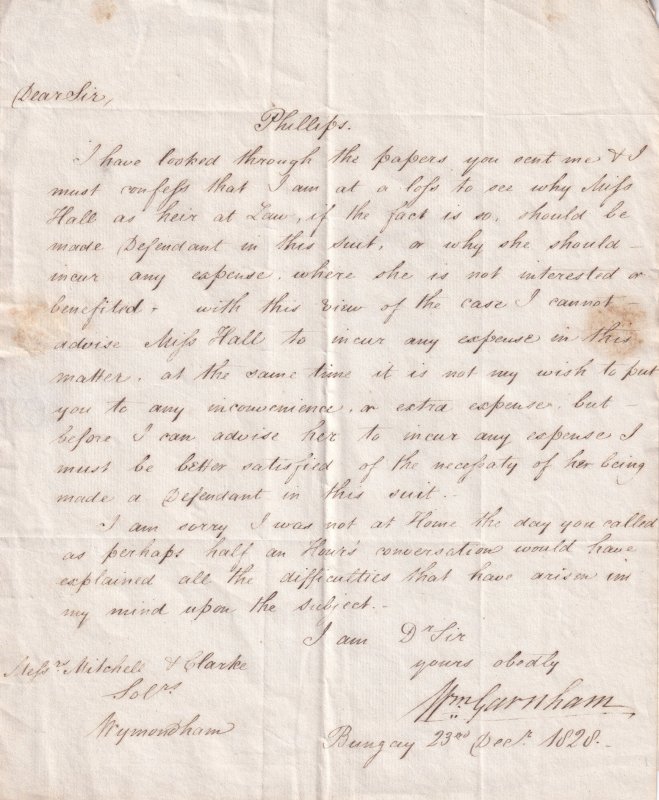 Dear Sir,
Phillips.
I have looked through the papers you sent me & I
must confess that I am at a loss to see why Miss
Hall as heir at Law, if the fact is so, should be
made Defendant in this suit, or why she should –
incur any expense, where she is not interested or
benefited. with this view of the case I cannot –
advise Miss Hall to incur any expense in this
matter. at the same time it is not my wish to put
you to any inconvenience, or extra expense, but –
before I can advise her to incur any expense I
must be better satisfied of the necessaty of her being
made a Defendant in this suit. –
I am sorry I was not at Home the day you called
as perhaps half an Hour's conversation would have
explained all the difficulties that have arisen in
my mind upon the subject. –
I am Dr Sir
yours obedly
Wm Garnham
Messrs Mitchell & Clarke
Solrs
Wymondham
Bungay 23rd Decr 1828. –